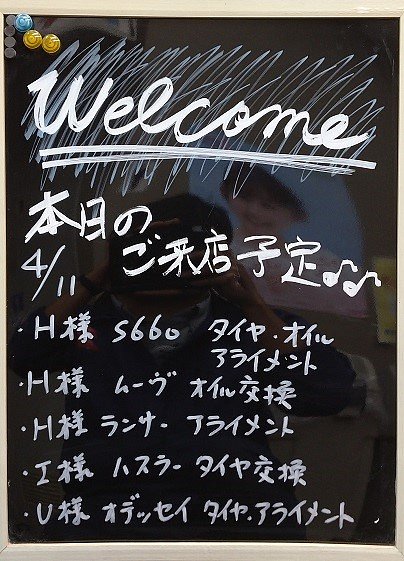 Welcome
本日の
4/11 ご来店予定♪♫
・H様 S660 タイヤ・オイル
アライメント
・H様 ムーヴ オイル交換
・H様 ランサー アライメント
・I様 ハスラー タイヤ交換
・U様 オデッセイ タイヤ・アライメント